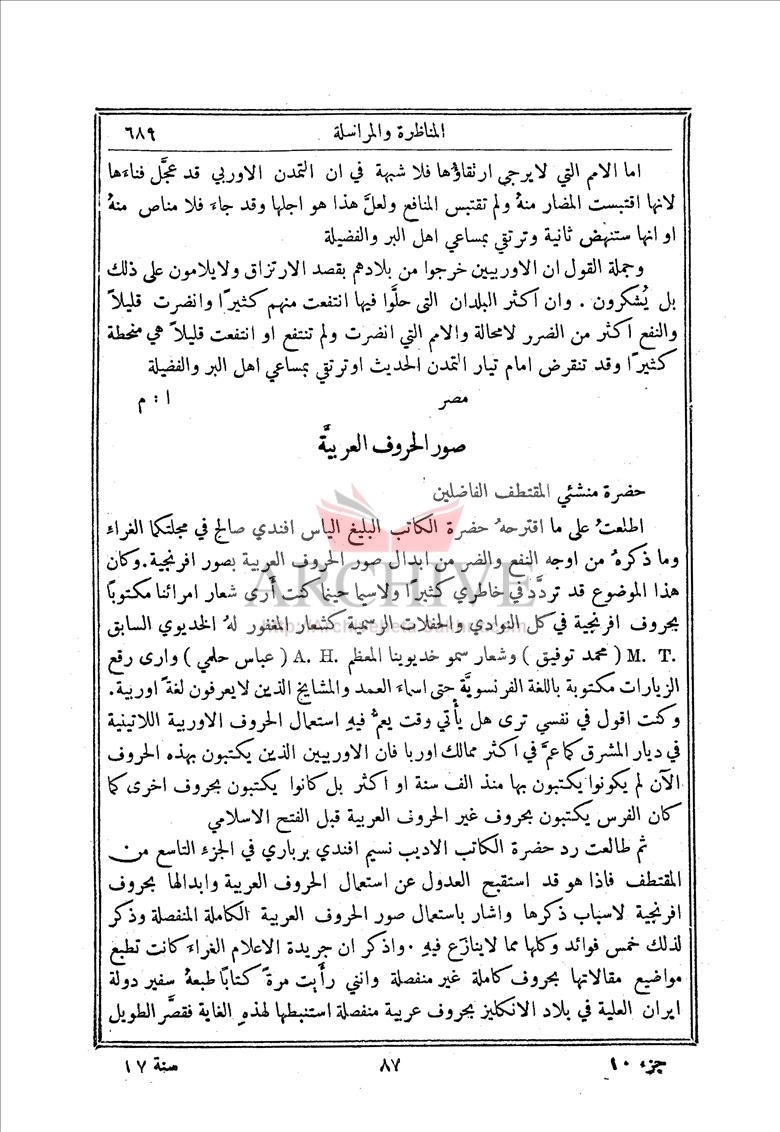 المناظرة والمراسلة
٦٨٩
اما الامم التي لايرجى ارتقاؤها فلا شبهة في ان التمدن الاوربي قد عجَّل فناءَها
لانها اقتبست المضار منهُ ولم تقتبس المنافع ولعلَّ هذا هو اجلها وقد جاءَ فلا مناص منهُ
او انها ستنهض ثانية وترتقي بمساعي اهل البر والفضيلة
وجملة القول ان الاوربيين خرجوا من بلادهم بقصد الارتزاق ولايلامون على ذلك
بل يُشكرون . وان اكثر البلدان التى حلَّوا فيها انتفعت منهم كثيرًا وانضرت قليلاً
والنفع اكثر من الضرر لامحالة والامم التي انضرت ولم تنتفع او انتفعت قليلاً هي منحطة
كثيرًا وقد تنقرض امام تيار التمدن الحديث اوترتقي بمساعي اهل البر والفضيلة
مصر ا : م
صور الحروف العربيَّة
حضرة منشئي المقتطف الفاضلين
اطلعتُ على ما اقترحهُ حضرة الكاتب البليغ الياس افندي صالح في مجلتكما الغراء
وما ذكرهُ من اوجه النفع والضر من ابدال صور الحروف العربية بصور افرنجية.وكان
هذا الموضوع قد تردَّد في خاطري كثيرًا ولاسيما حينما كنت أَرى شعار امرائنا مكتوبًا
بحروف افرنجية في كل النوادي والحفلات الرسمية كشعار المغفور لهُ الخديوي السابق
M. T. ( محمد توفيق ) وشعار سمو خديوينا المعظم A. H. ( عباس حلمي ) وارى رقع
الزيارات مكتوبة باللغة الفرنسويَّة حتى اسماء العمد والمشايخ الذين لايعرفون لغة اوربية.
وكنت اقول في نفسي ترى هل يأتي وقت يعمُّ فيهِ استعمال الحروف الاوربية اللاتينية
في ديار المشرق كما عمَّ في اكثر ممالك اوربا فان الاوربيين الذين يكتبون بهذه الحروف
الآن لم يكونوا يكتبون بها منذ الف سنة او اكثر بل كانوا يكتبون بحروف اخرى كما
كان الفرس يكتبون بحروف غير الحروف العربية قبل الفتح الاسلامي
ثم طالعت رد حضرة الكاتب الاديب نسيم افندي برباري في الجزء التاسع من
المقتطف فاذا هو قد استقبح العدول عن استعمال الحروف العربية وابدالها بحروف
افرنجية لاسباب ذكرها واشار باستعمال صور الحروف العربية الكاملة المنفصلة وذكر
لذلك خمس فوائد وكلها مما لاينازع فيهِ .واذكر ان جريدة الاعلام الغراء كانت تطبع
مواضيع مقالاتها بحروف كاملة غير منفصلة وانني رأَيت مرةً كتابًا طبعهُ سفير دولة
ايران العلية في بلاد الانكليز بحروف عربية منفصلة استنبطها لهذهِ الغاية فقصَّر الطويل
جزء ١٠
٨٧
سنة ١٧
ARCHIVE